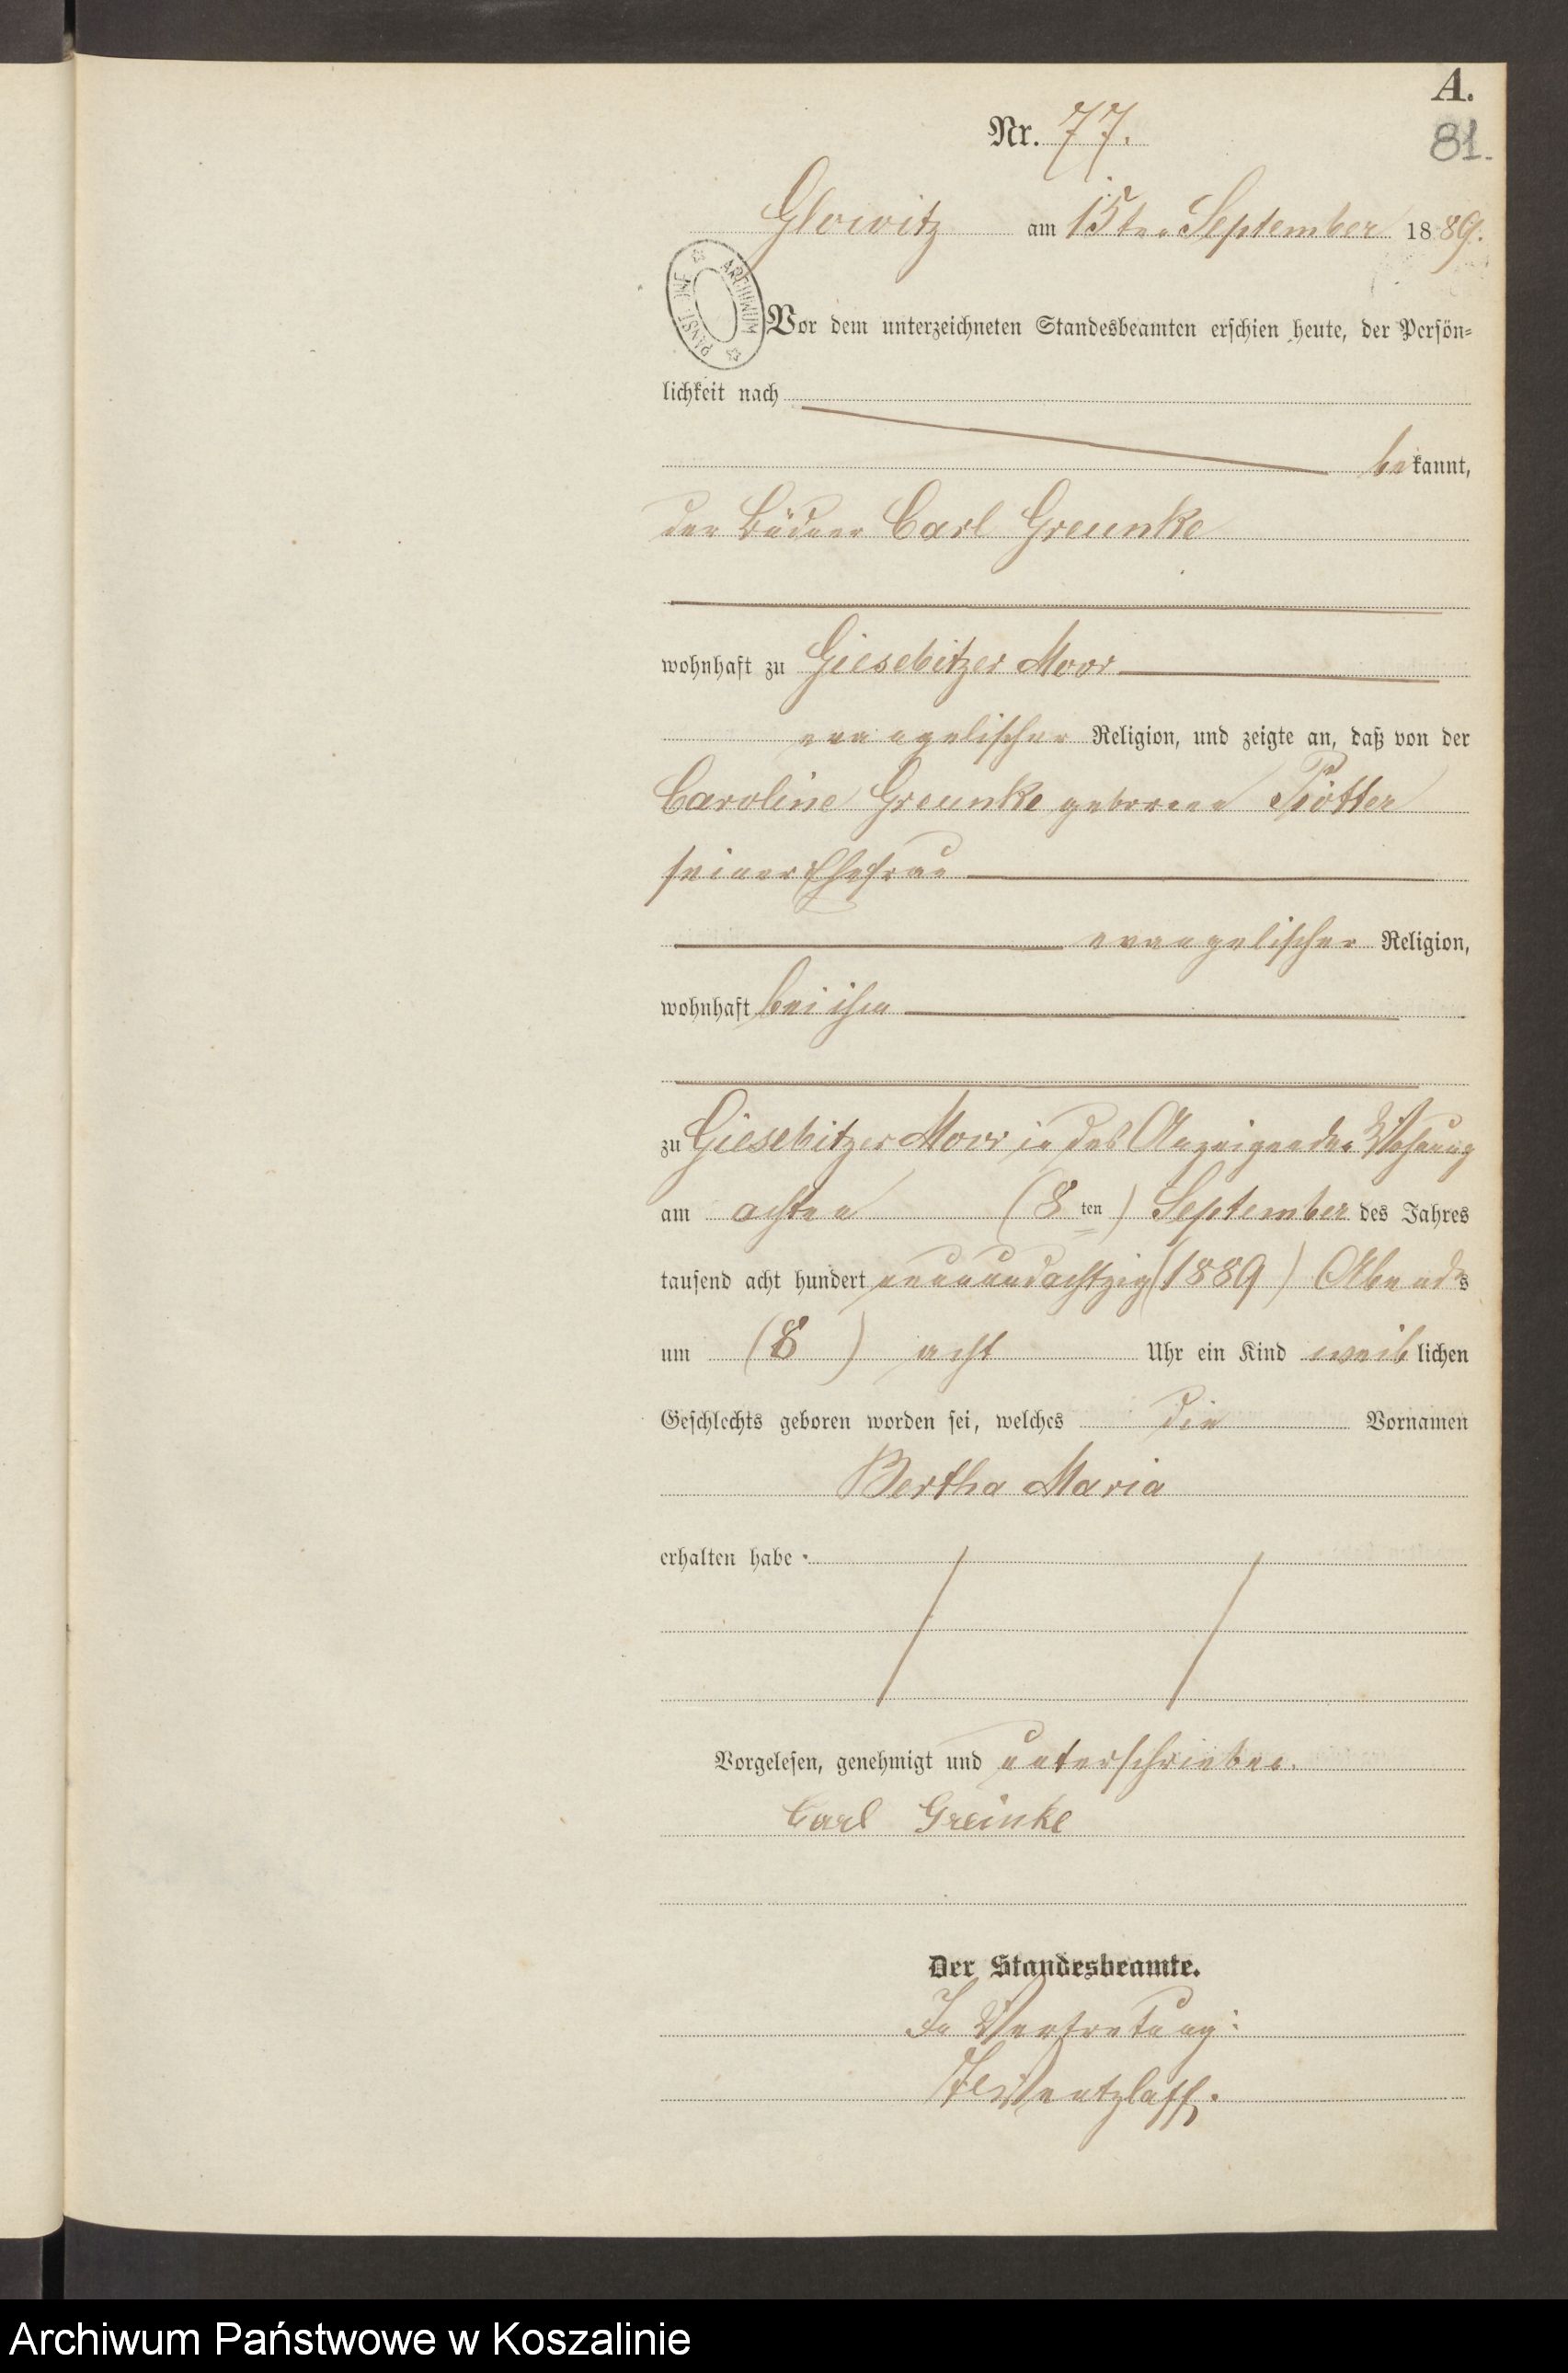 A.
Nr. 77.
81.
Glowitz am 15ten September 1889.
ARCHIWUM PAŃSTWOWE
Vor dem unterzeichneten Standesbeamten erschien heute, der Persön=
lichkeit nach
bekannt,
der Büdner Carl Greunke
wohnhaft zu Giesebitzer Moor
evangelischer Religion, und zeigte an, daß von der
Caroline Greunke geborene
seiner Ehefrau
evangelischer Religion,
wohnhaft bei ihm
zu Giesebitzer Moor in des Anzeigenden Wohnung
am achten (8ten) September des Jahres
tausend acht hundert neunundachtzig (1889) Abends
um (8) acht Uhr ein Kind weiblichen
Geschlechts geboren worden sei, welches die Vornamen
Bertha Maria
erhalten habe.
Vorgelesen, genehmigt und unterschrieben.
Carl Greinke
Der Standesbeamte.
In Vertretung:
Wentzlaff.
Archiwum Państwowe w Koszalinie